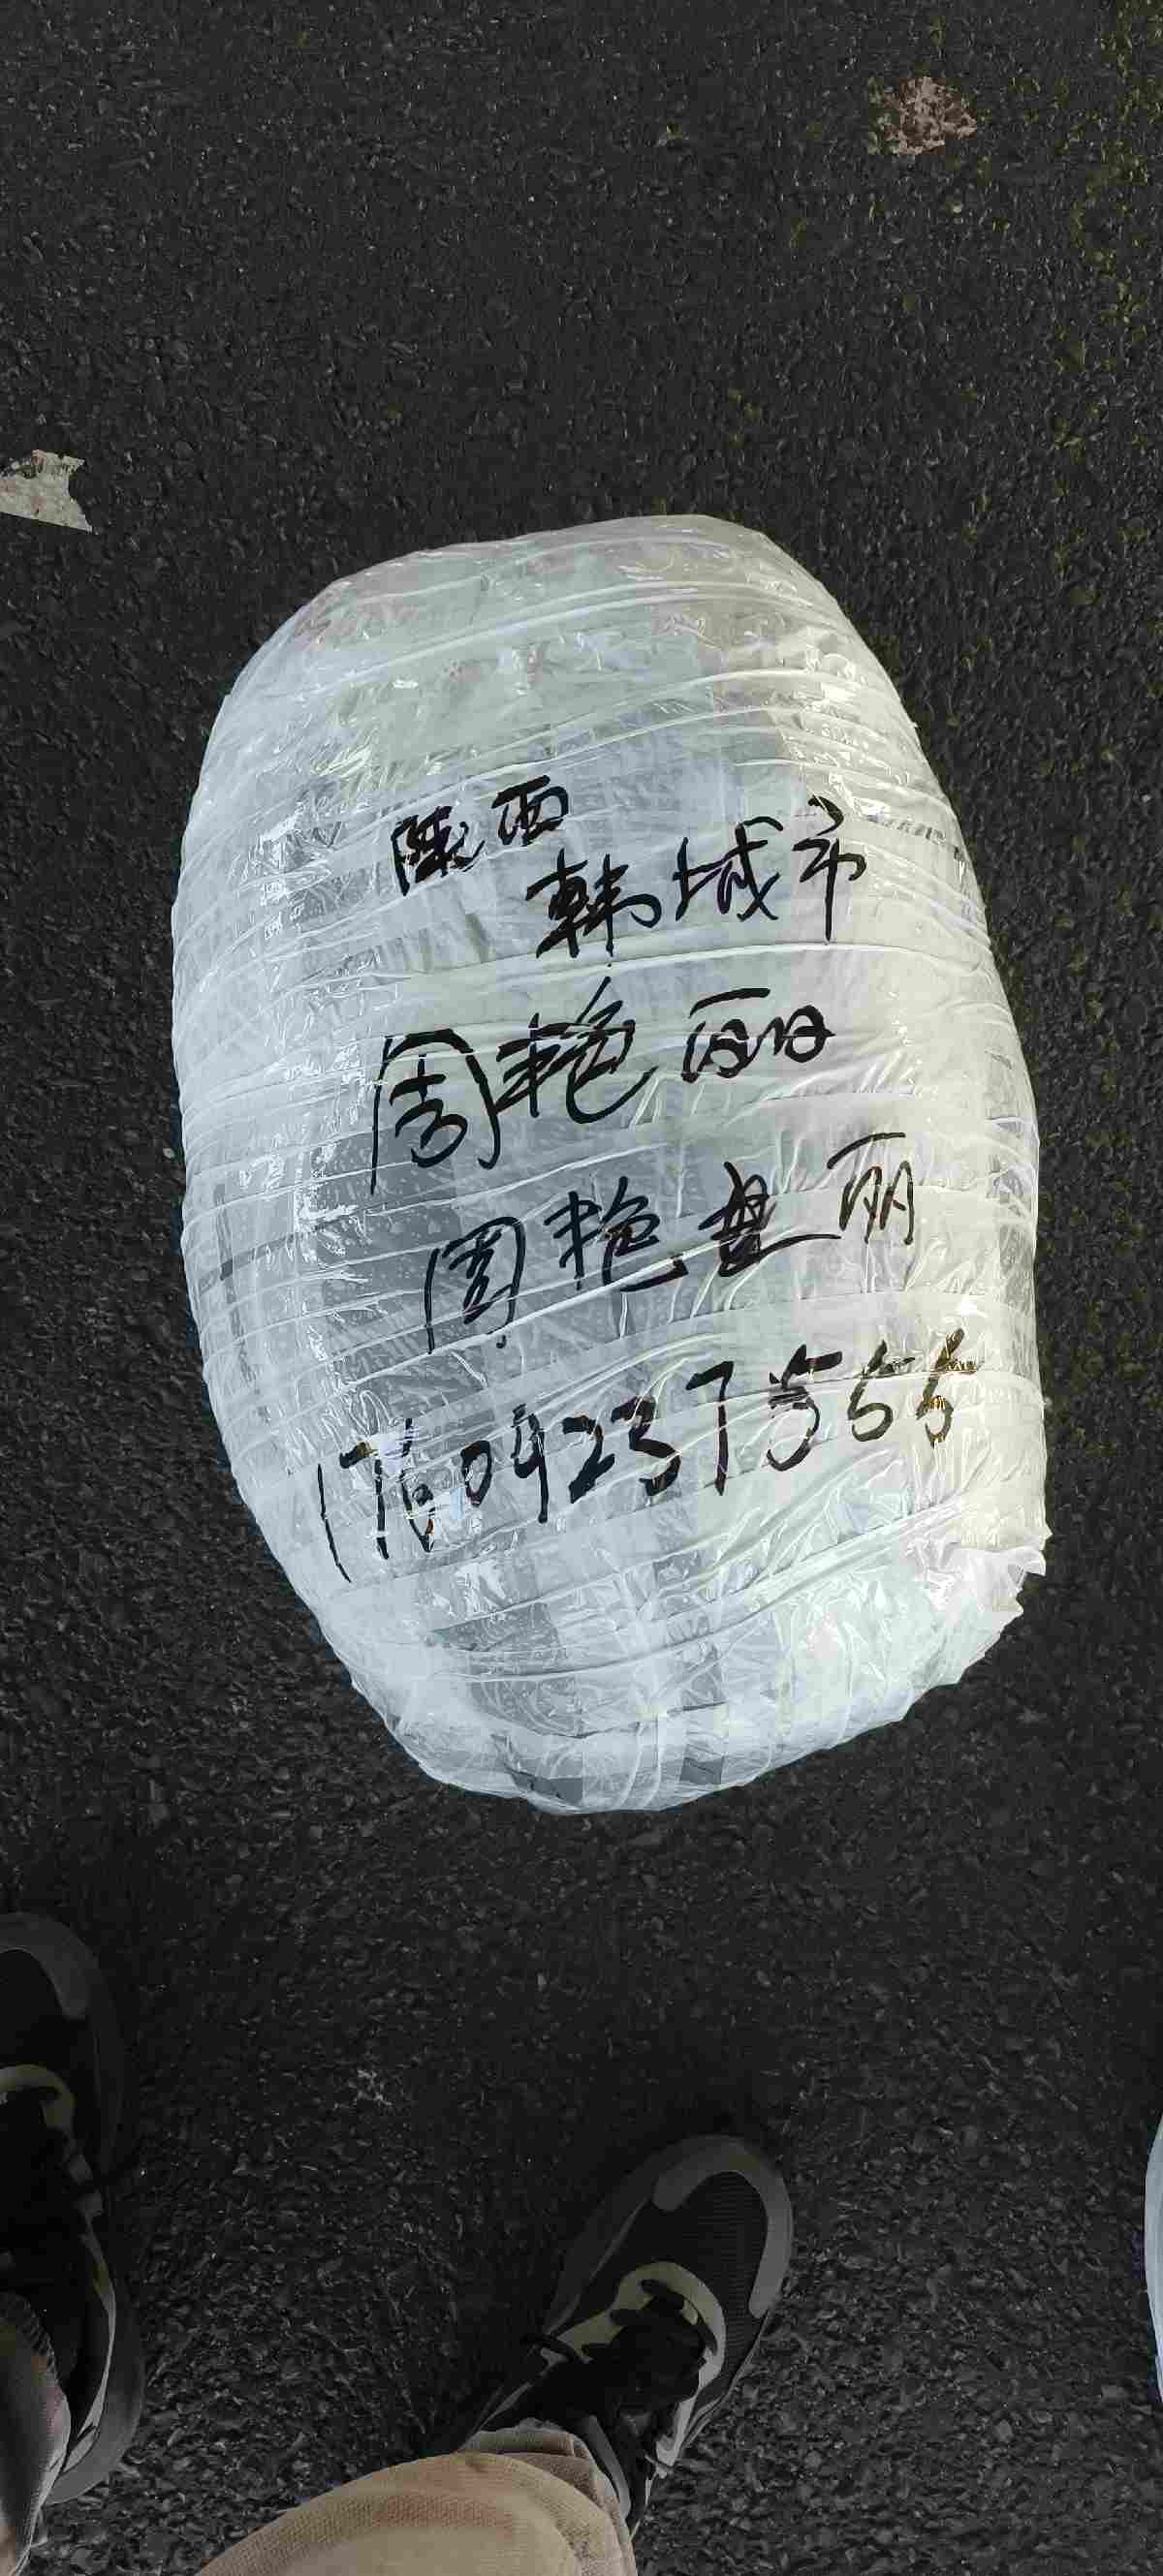 陕西
韩城市
周艳丽
周艳丽
17604237555